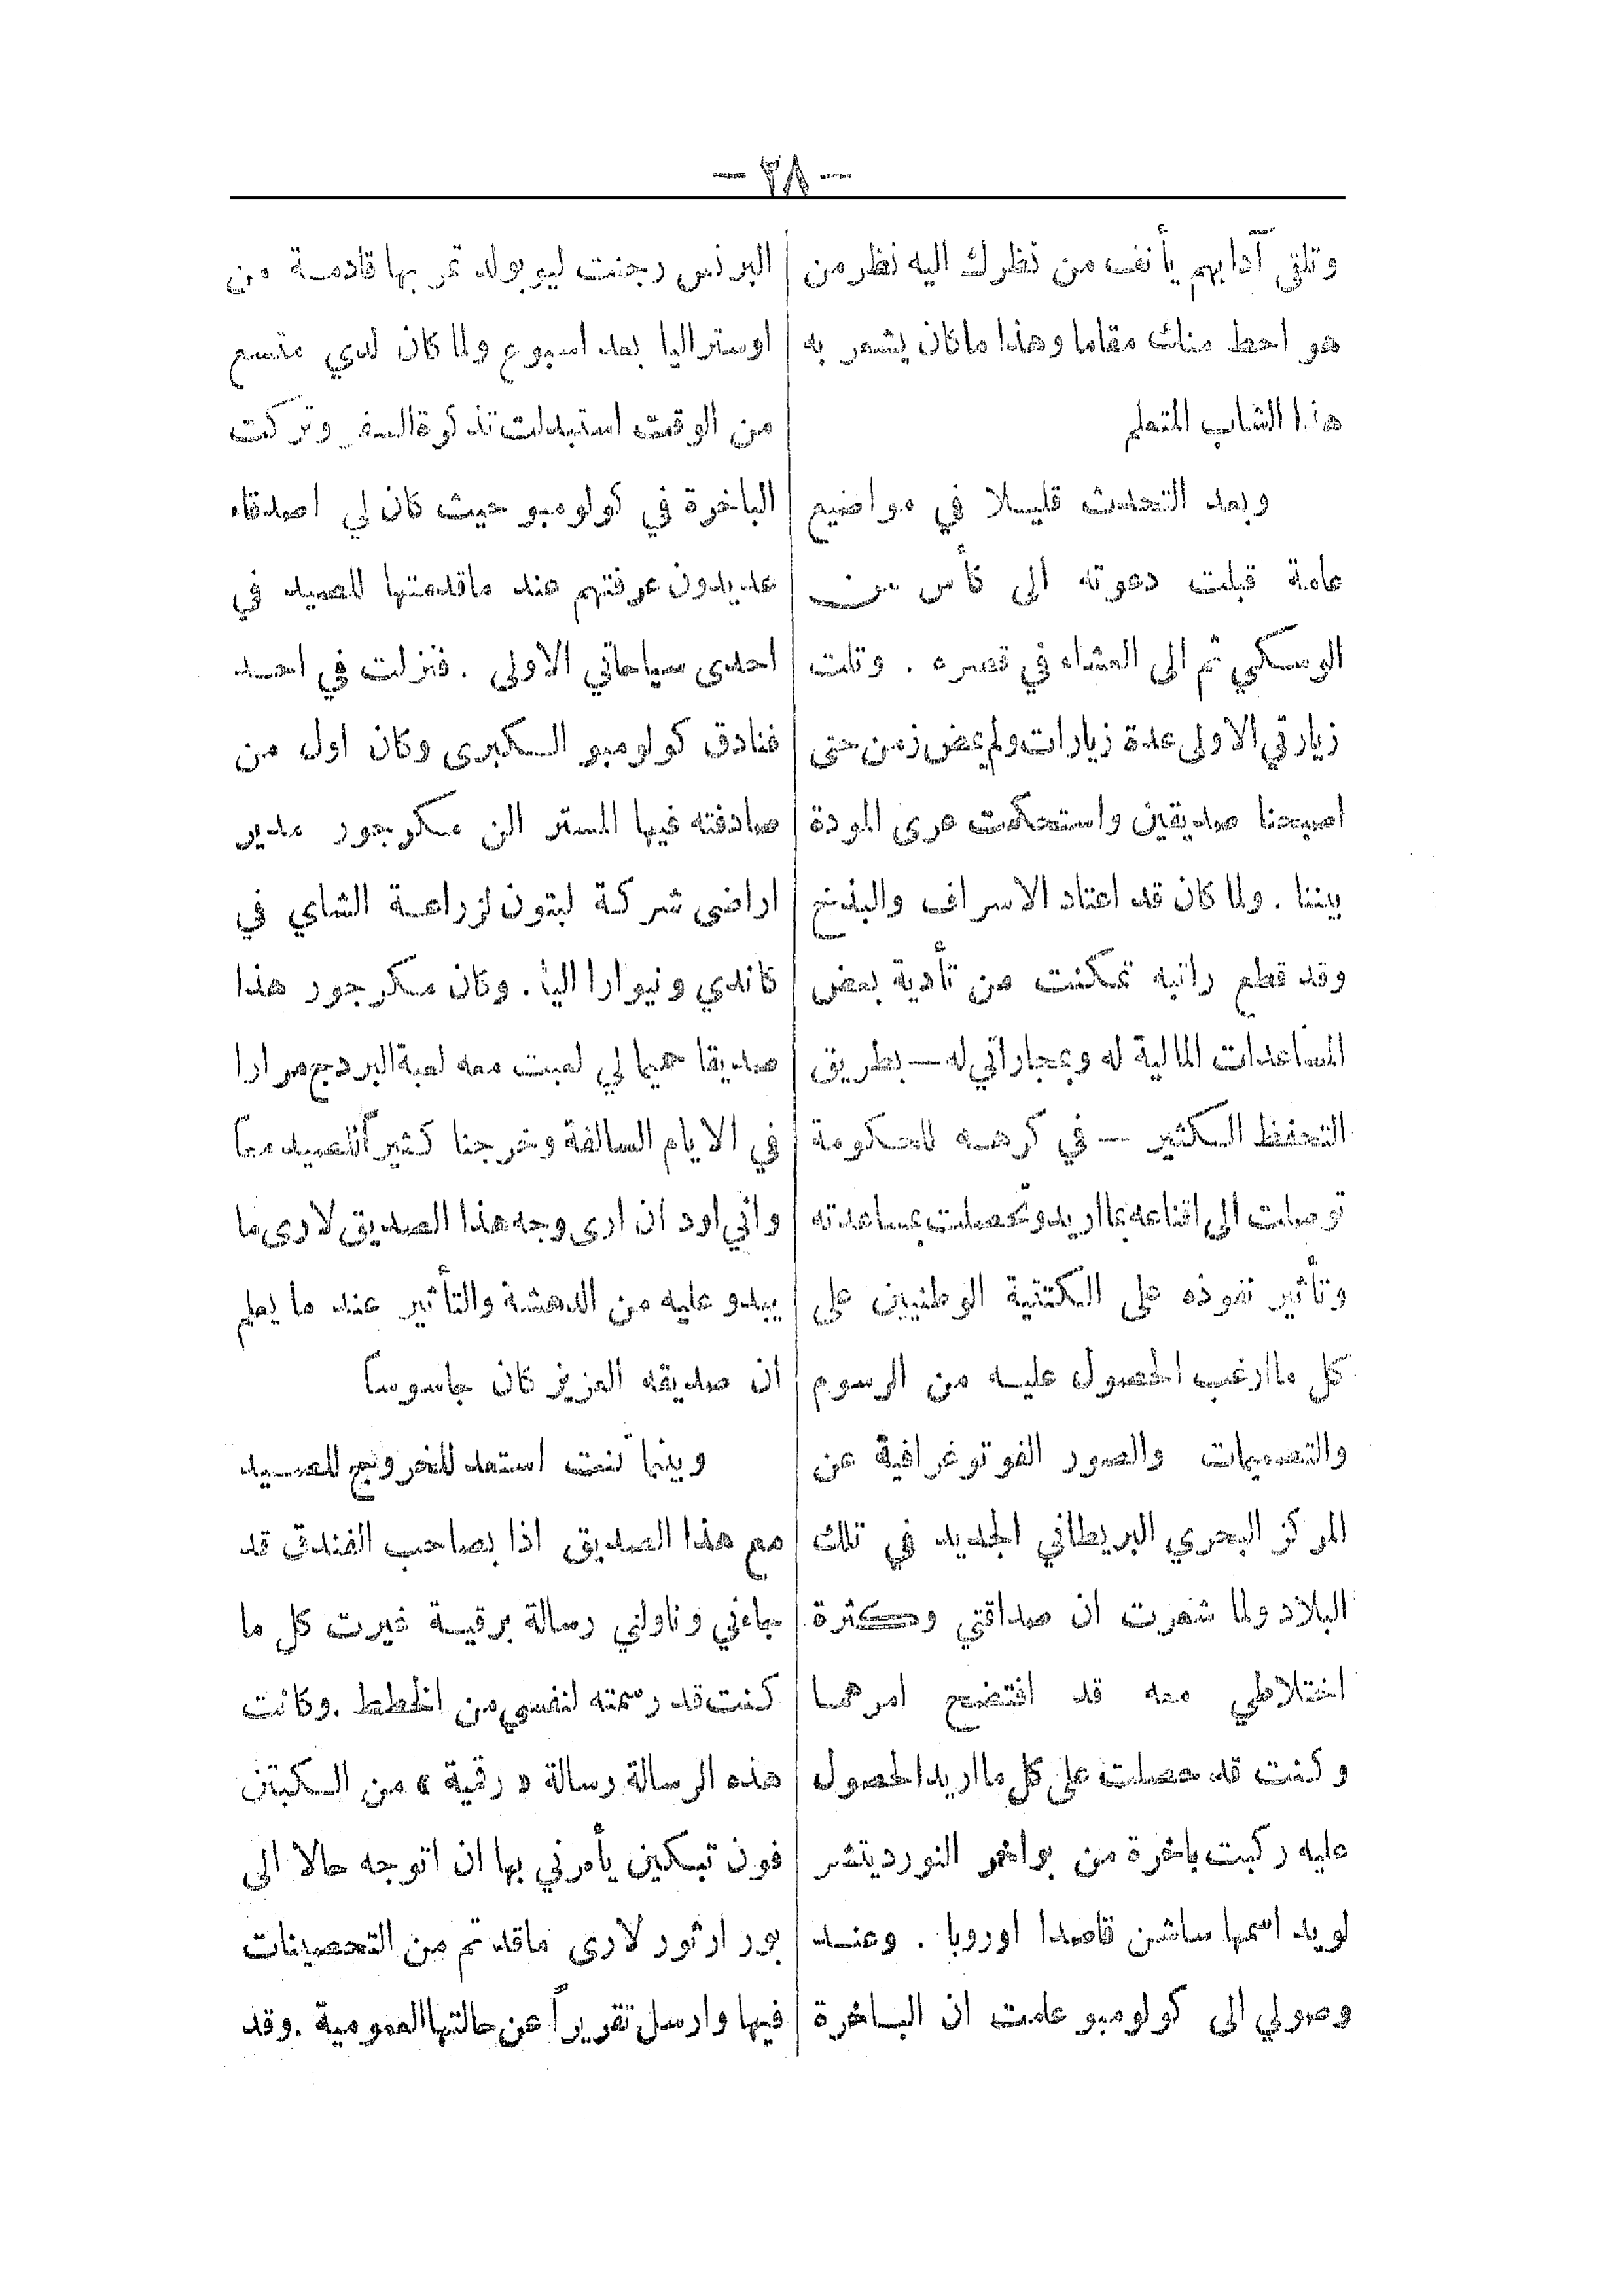 — ٣٨ —
وتلقى آدابهم يأنف من نظرك اليه نظر من
هو احط منك مقاما وهذا ماكان يشعر به
هذا الشاب المتعلم
وبعد التحدث قليلا في مواضيع
عامة قبلت دعوته الى كأس من
الوسكي ثم الى العشاء في قصره . وتلت
زيارتي الاولى عدة زيارات ولم يمض زمن حتى
اصبحنا صديقين واستحكمت عرى المودة
بيننا . ولما كان قد اعتاد الاسراف والبذخ
وقد قطع راتبه تمكنت من تأدية بعض
المساعدات المالية له وبمجاراتي له — بطريق
التحفظ الكثير — في كرهه للحكومة
توصلت الى اقناعه بما اريد وتحصلت بمساعدته
وتأثير نفوذه على الكتبة الوطنيين على
كل ما ارغب الحصول عليه من الرسوم
والتصميمات والصور الفوتوغرافية عن
المركز البحري البريطاني الجديد في تلك
البلاد ولما شعرت ان صداقتي وكثرة
اختلاطي معه قد افتضح امرهما
وكنت قد حصلت على كل ما اريد الحصول
عليه ركبت باخرة من بواخر النورديتشر
لويد اسمها ساشن قاصدا اوروبا . وعند
وصولي الى كولومبو علمت ان الباخرة
البرنس رجنت ليوبولد تمر بها قادمة من
اوستراليا بعد اسبوع ولما كان لدي متسع
من الوقت استبدلت تذكرة السفر وتركت
الباخرة في كولومبو حيث كان لي اصدقاء
عديدون عرفتهم عند ماقدمتها للصيد في
احدى سياحاتي الاولى . فنزلت في احد
فنادق كولومبو الكبرى وكان اول من
صادفته فيها المستر الن مكرجور مدير
اراضي شركة لبتون لزراعة الشاي في
كاندي ونيوارا اليا . وكان مكرجور هذا
صديقا حميما لي لعبت معه لعبة البردج مرارا
في الايام السالفة وخرجنا كثيراً للصيد معاً
واني اود ان ارى وجه هذا الصديق لارى ما
يبدو عليه من الدهشة والتأثير عند ما يعلم
ان صديقه العزيز كان جاسوساً
وبينما كنت استعد للخروج للصيد
مع هذا الصديق اذا بصاحب الفندق قد
جاءني وناولني رسالة برقية غيرت كل ما
كنت قد رسمته لنفسي من الخطط . وكانت
هذه الرسالة رسالة « رقية » من الكبتن
فون تبكين يأمرني بها ان اتوجه حالا الى
بور ارثور لارى ماقد تم من التحصينات
فيها وارسل تقريراً عن حالتها العمومية . وقد